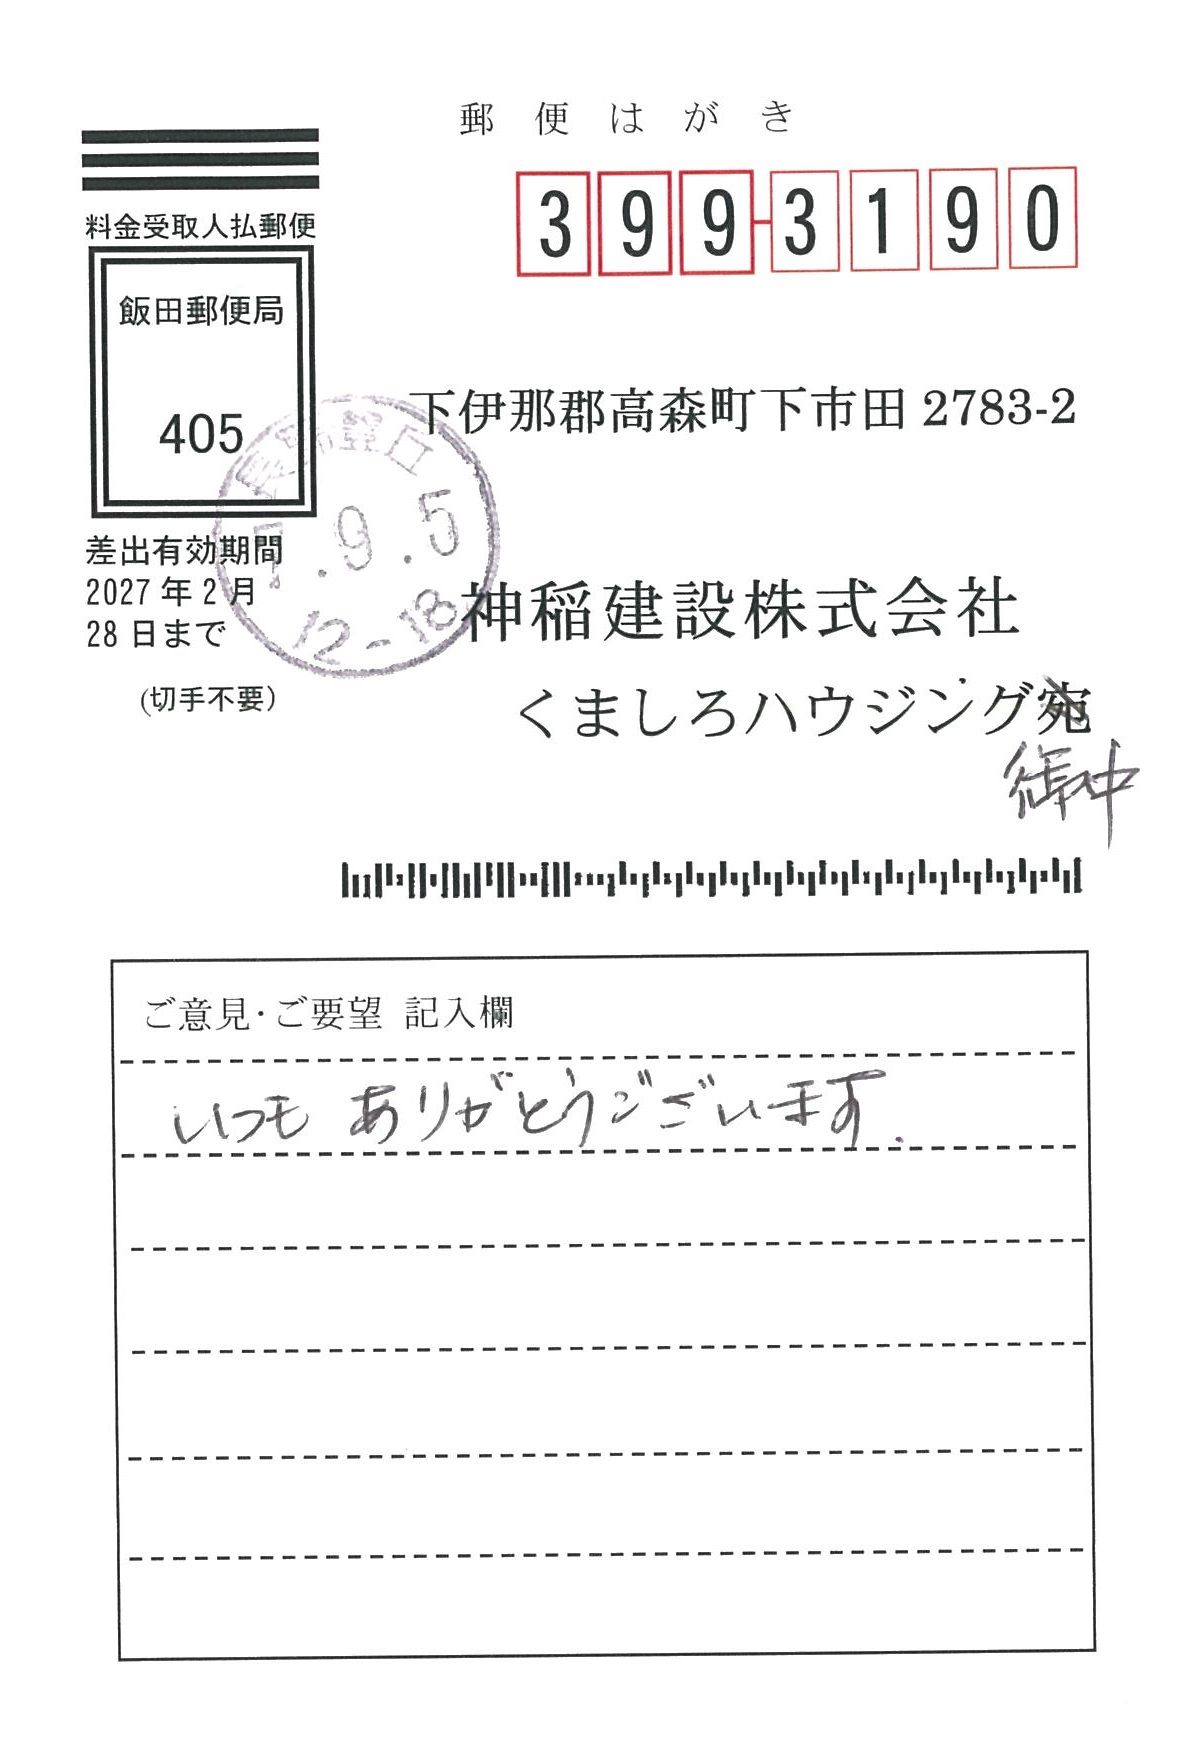 郵便はがき
399-3190
料金受取人払郵便
飯田郵便局
405
差出有効期間
2027年2月
28日まで
(切手不要)
7.9.5
12-18
下伊那郡高森町下市田 2783-2
神稲建設株式会社
くましろハウジング宛
御中
ご意見・ご要望 記入欄
いつも ありがとうございます.